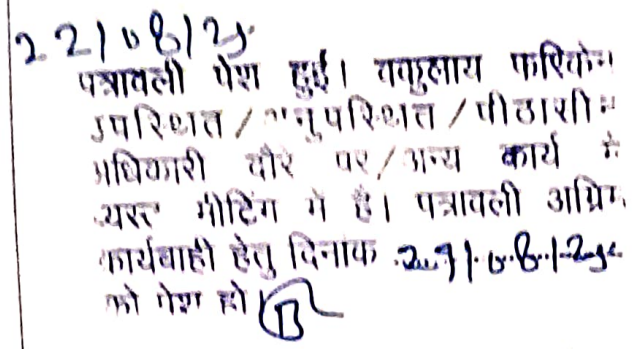 22/08/25
पत्रावली पेश हुई। वकुलाय फरिकेन
उपस्थित/अनुपस्थित/पीठासीन
अधिकारी दौरे पर/अन्य कार्य में
व्यस्त मीटिंग में है। पत्रावली अग्रिम
कार्यवाही हेतु दिनांक 29/08/25
को पेश हो।